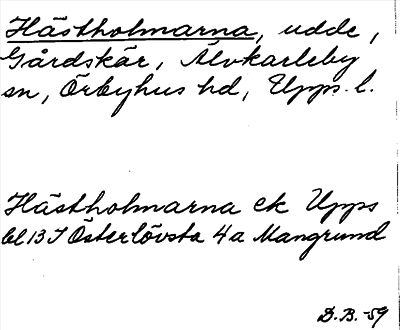 Hästholmarna, udde,
Gårdskär, Älvkarleby
sn, Örbyhus hd, Upps. l.
Hästholmarna ek Upps
bl 13 I Österlövsta 4a Mangrund
D.B. -59